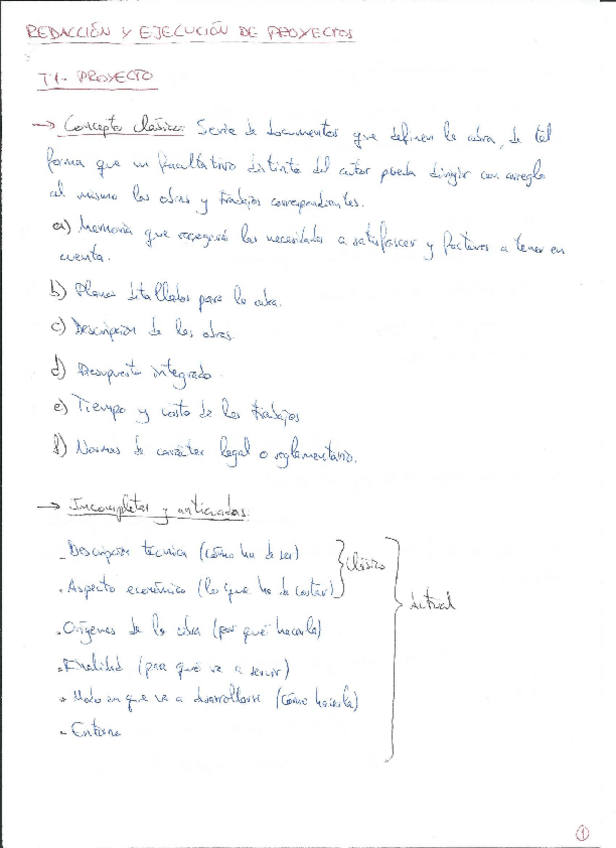 REDACCIÓN Y EJECUCIÓN DE PROYECTOS
T1- PROYECTO
→ Concepto clásico: Serie de documentos que definen la obra, de tal
forma que un facultativo distinto del autor pueda dirigir con arreglo
al mismo las obras y trabajos correspondientes.
a) Memoria que recogerá las necesidades a satisfacer y factores a tener en
cuenta.
b) Planos detallados para la obra.
c) Descripción de las obras.
d) Presupuesto integrado.
e) Tiempo y costo de los trabajos
f) Normas de carácter legal o reglamentario.
→ Incompletas y anticuadas
- Descripción técnica (cómo ha de ser)
- Aspecto económico (lo que ha de costar)
} Clásico
- Orígenes de la obra (por qué hacerla)
- Finalidad (para qué va a servir)
- Modo en que va a desarrollarse (cómo hacerla)
- Entorno
} Actual
1